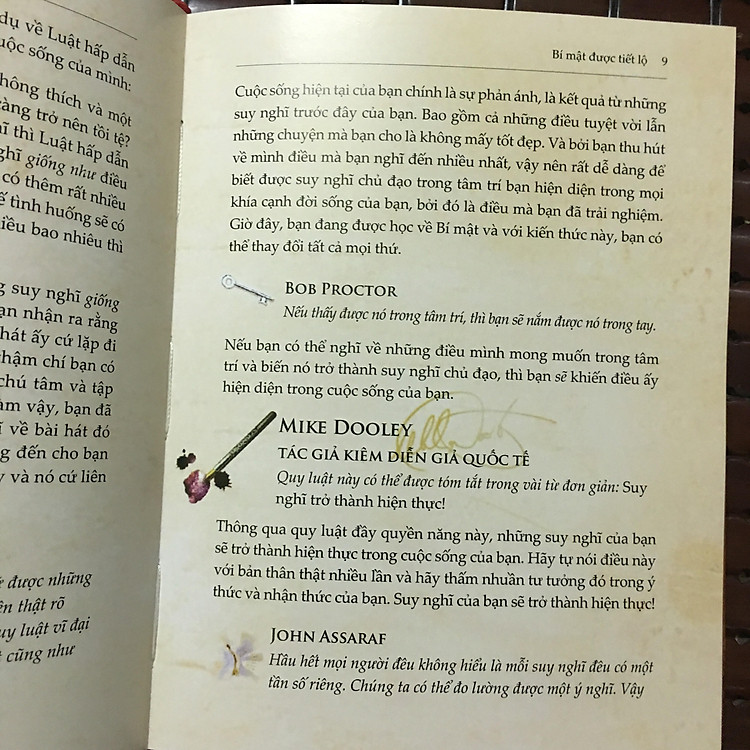 dụ về Luật hấp dẫn
uộc sống của mình:
hông thích và một
àng trở nên tồi tệ?
ĩ thì Luật hấp dẫn
ghĩ giống như điều
có thêm rất nhiều
ế tình huống sẽ có
iều bao nhiêu thì
g suy nghĩ giống
ạn nhận ra rằng
hát ấy cứ lặp đi
hậm chí bạn có
chú tâm và tập
àm vậy, bạn đã
ĩ về bài hát đó
g đến cho bạn
y và nó cứ liên
ừ được những
ên thật rõ
uy luật vĩ đại
t cũng như
Bí mật được tiết lộ 9
Cuộc sống hiện tại của bạn chính là sự phản ánh, là kết quả từ những
suy nghĩ trước đây của bạn. Bao gồm cả những điều tuyệt vời lẫn
những chuyện mà bạn cho là không mấy tốt đẹp. Và bởi bạn thu hút
về mình điều mà bạn nghĩ đến nhiều nhất, vậy nên rất dễ dàng để
biết được suy nghĩ chủ đạo trong tâm trí bạn hiện diện trong mọi
khía cạnh đời sống của bạn, bởi đó là điều mà bạn đã trải nghiệm.
Giờ đây, bạn đang được học về Bí mật và với kiến thức này, bạn có
thể thay đổi tất cả mọi thứ.
BOB PROCTOR
Nếu thấy được nó trong tâm trí, thì bạn sẽ nắm được nó trong tay.
Nếu bạn có thể nghĩ về những điều mình mong muốn trong tâm
trí và biến nó trở thành suy nghĩ chủ đạo, thì bạn sẽ khiến điều ấy
hiện diện trong cuộc sống của bạn.
MIKE DOOLEY
TÁC GIẢ KIÊM DIỄN GIẢ QUỐC TẾ
Quy luật này có thể được tóm tắt trong vài từ đơn giản: Suy
nghĩ trở thành hiện thực!
Thông qua quy luật đầy quyền năng này, những suy nghĩ của bạn
sẽ trở thành hiện thực trong cuộc sống của bạn. Hãy tự nói điều này
với bản thân thật nhiều lần và hãy thấm nhuần tư tưởng đó trong ý
thức và nhận thức của bạn. Suy nghĩ của bạn sẽ trở thành hiện thực!
JOHN ASSARAF
Hầu hết mọi người đều không hiểu là mỗi suy nghĩ đều có một
tần số riêng. Chúng ta có thể đo lường được một ý nghĩ. Vậy